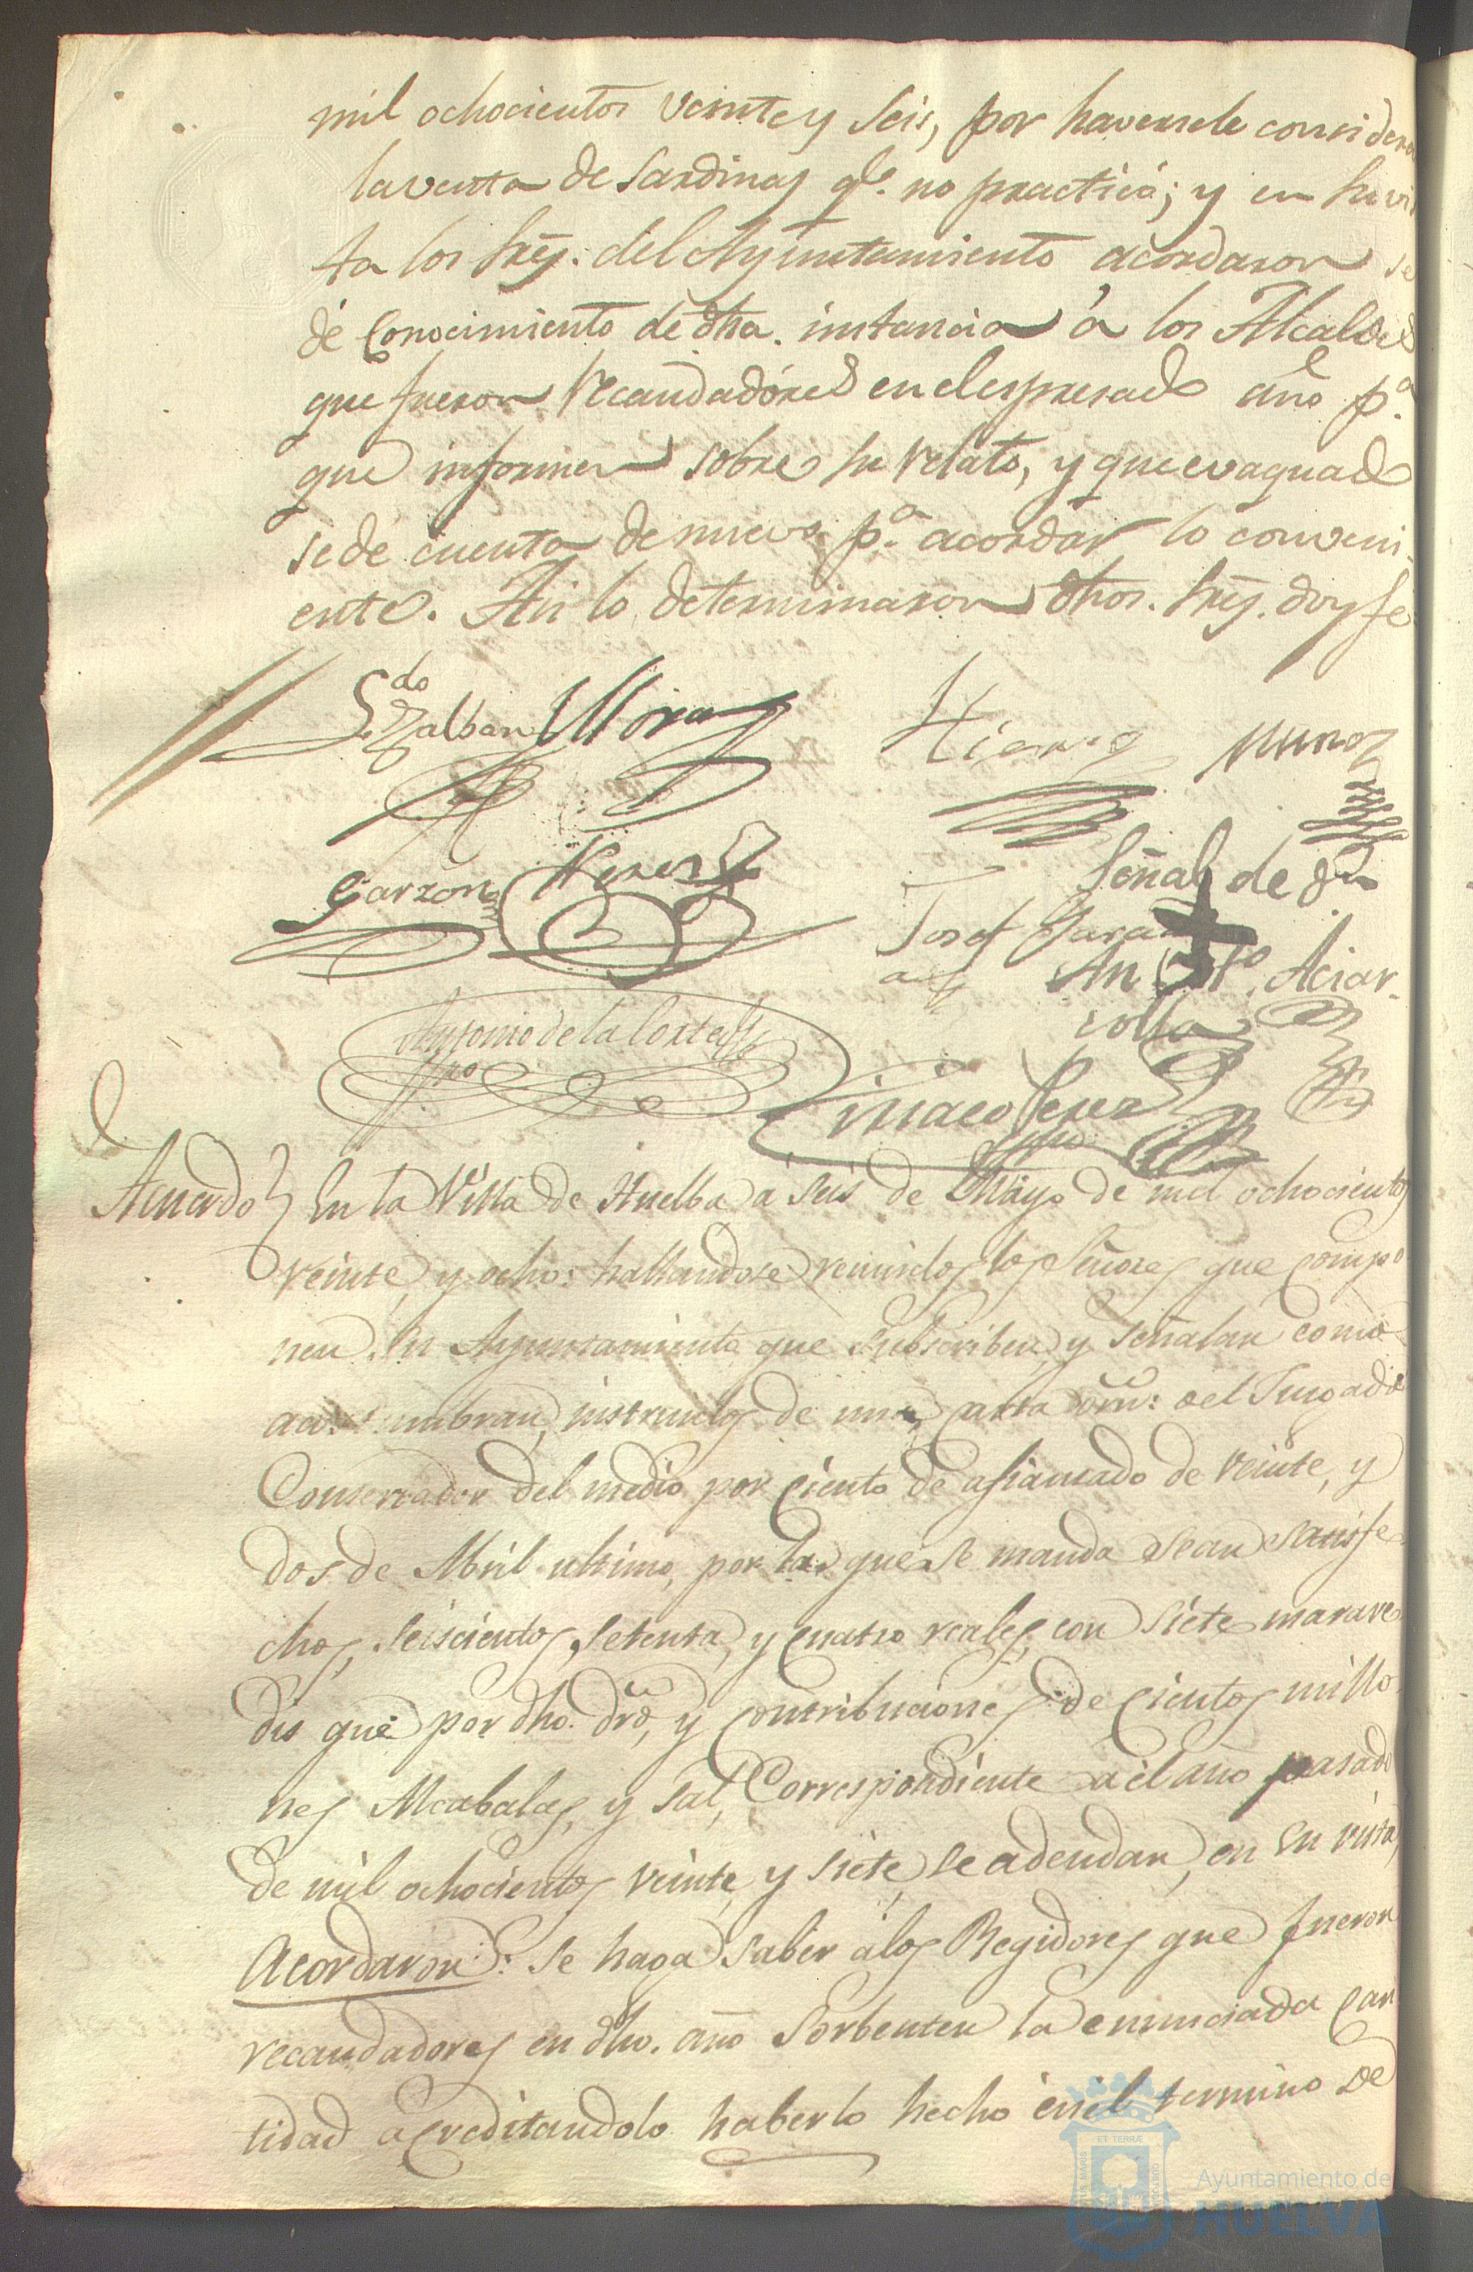 mil ochocientos veinte y seis, por haversele considera
la venta de sardinas qe. no practicó; y en su vis
ta los Sres. del Ayuntamiento acordaron se
dé conocimiento de dha. instancia á los Alcaldes
que fueron recaudadores en el espresado año pa.
que informen sobre su relato, y que evaquado
se de cuenta de nuevo pa. acordar lo conveni
ente. Asi lo determinaron dhos. Sres. doy fe
Ldo Zalban Mora Hierro Muñoz
Garzon Perez Señal de Dn
Josef Jara
Anto. Aciar
Antonio de la Corte
Siriaco Perez
Acuerdo En la Villa de Huelba a seis de Mayo de mil ochocientos
veinte, y ocho: hallandose reunidos los Señores que compo
nen su Ayuntamiento que subscriben, y señalan como
acostumbran, instruidos de una carta orn: del Juzgado
Conservador del medio por ciento de afianzado de veinte, y
dos de Abril ultimo, por la que se manda sean satisfe
chos, seiscientos, setenta, y cuatro reales, con siete marave
dis que por dho. dro, y contribuciones de cientos millo
nes Alcabalas, y sal, Correspondiente a el año pasado
de mil ochocientos veinte, y siete se adeudan, en su vista,
Acordaron: se haga saber á los Regidores que fueron
recaudadores en dho. año Sorbenten la enunciada can
tidad acreditandolo haberlo hecho en el termino de
Ayuntamiento de
HUELVA